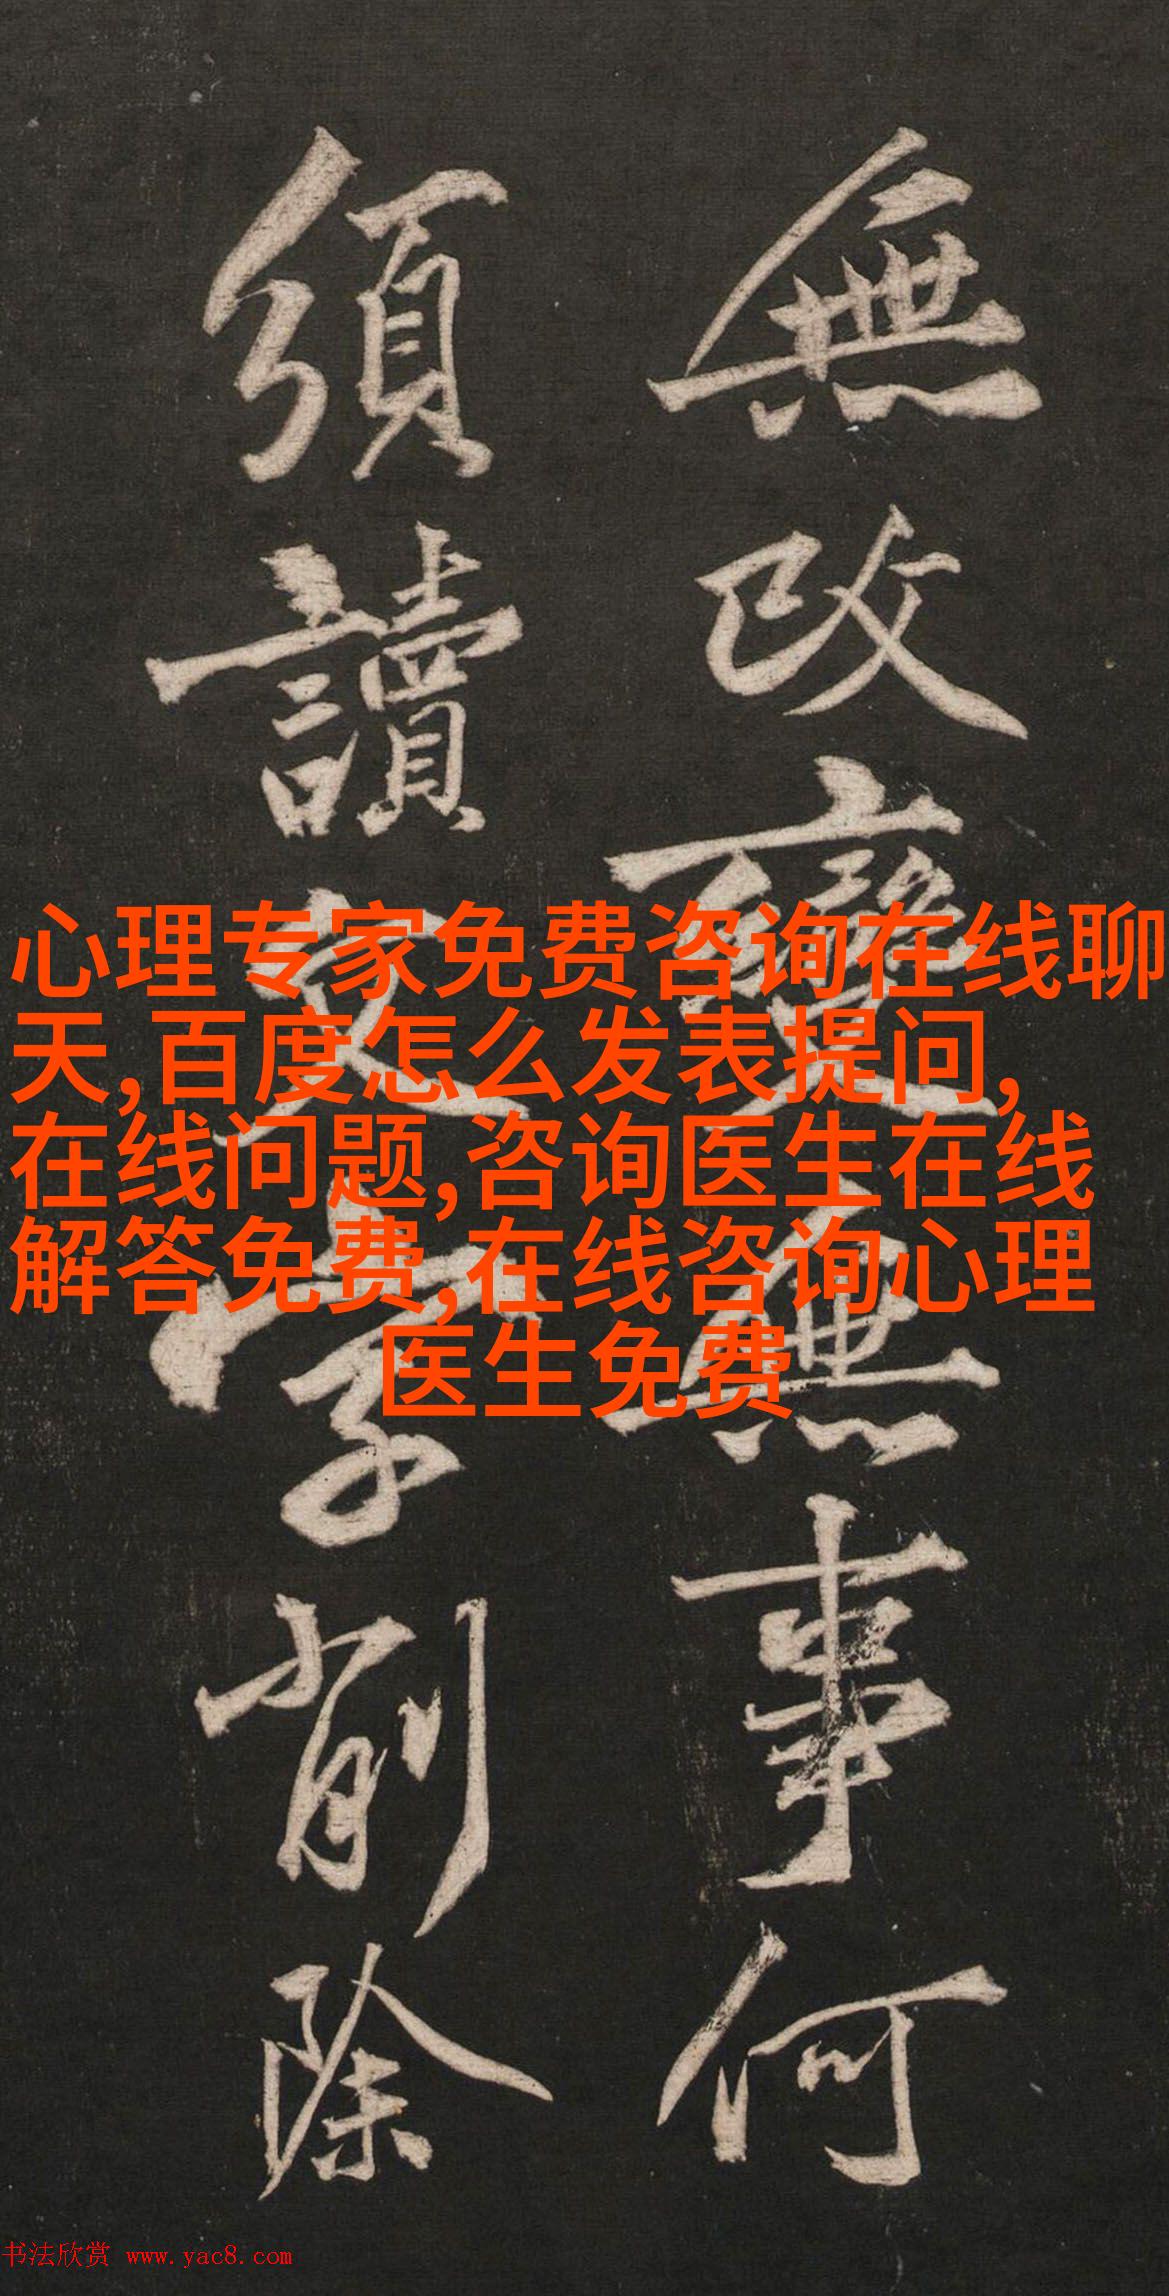 無改變無事何
須讀文字削除
心理专家免费咨询在线聊
天,百度怎么发表提问,
在线问题,咨询医生在线
解答免费,在线咨询心理
医生免费
书法欣赏 www.yac8.com